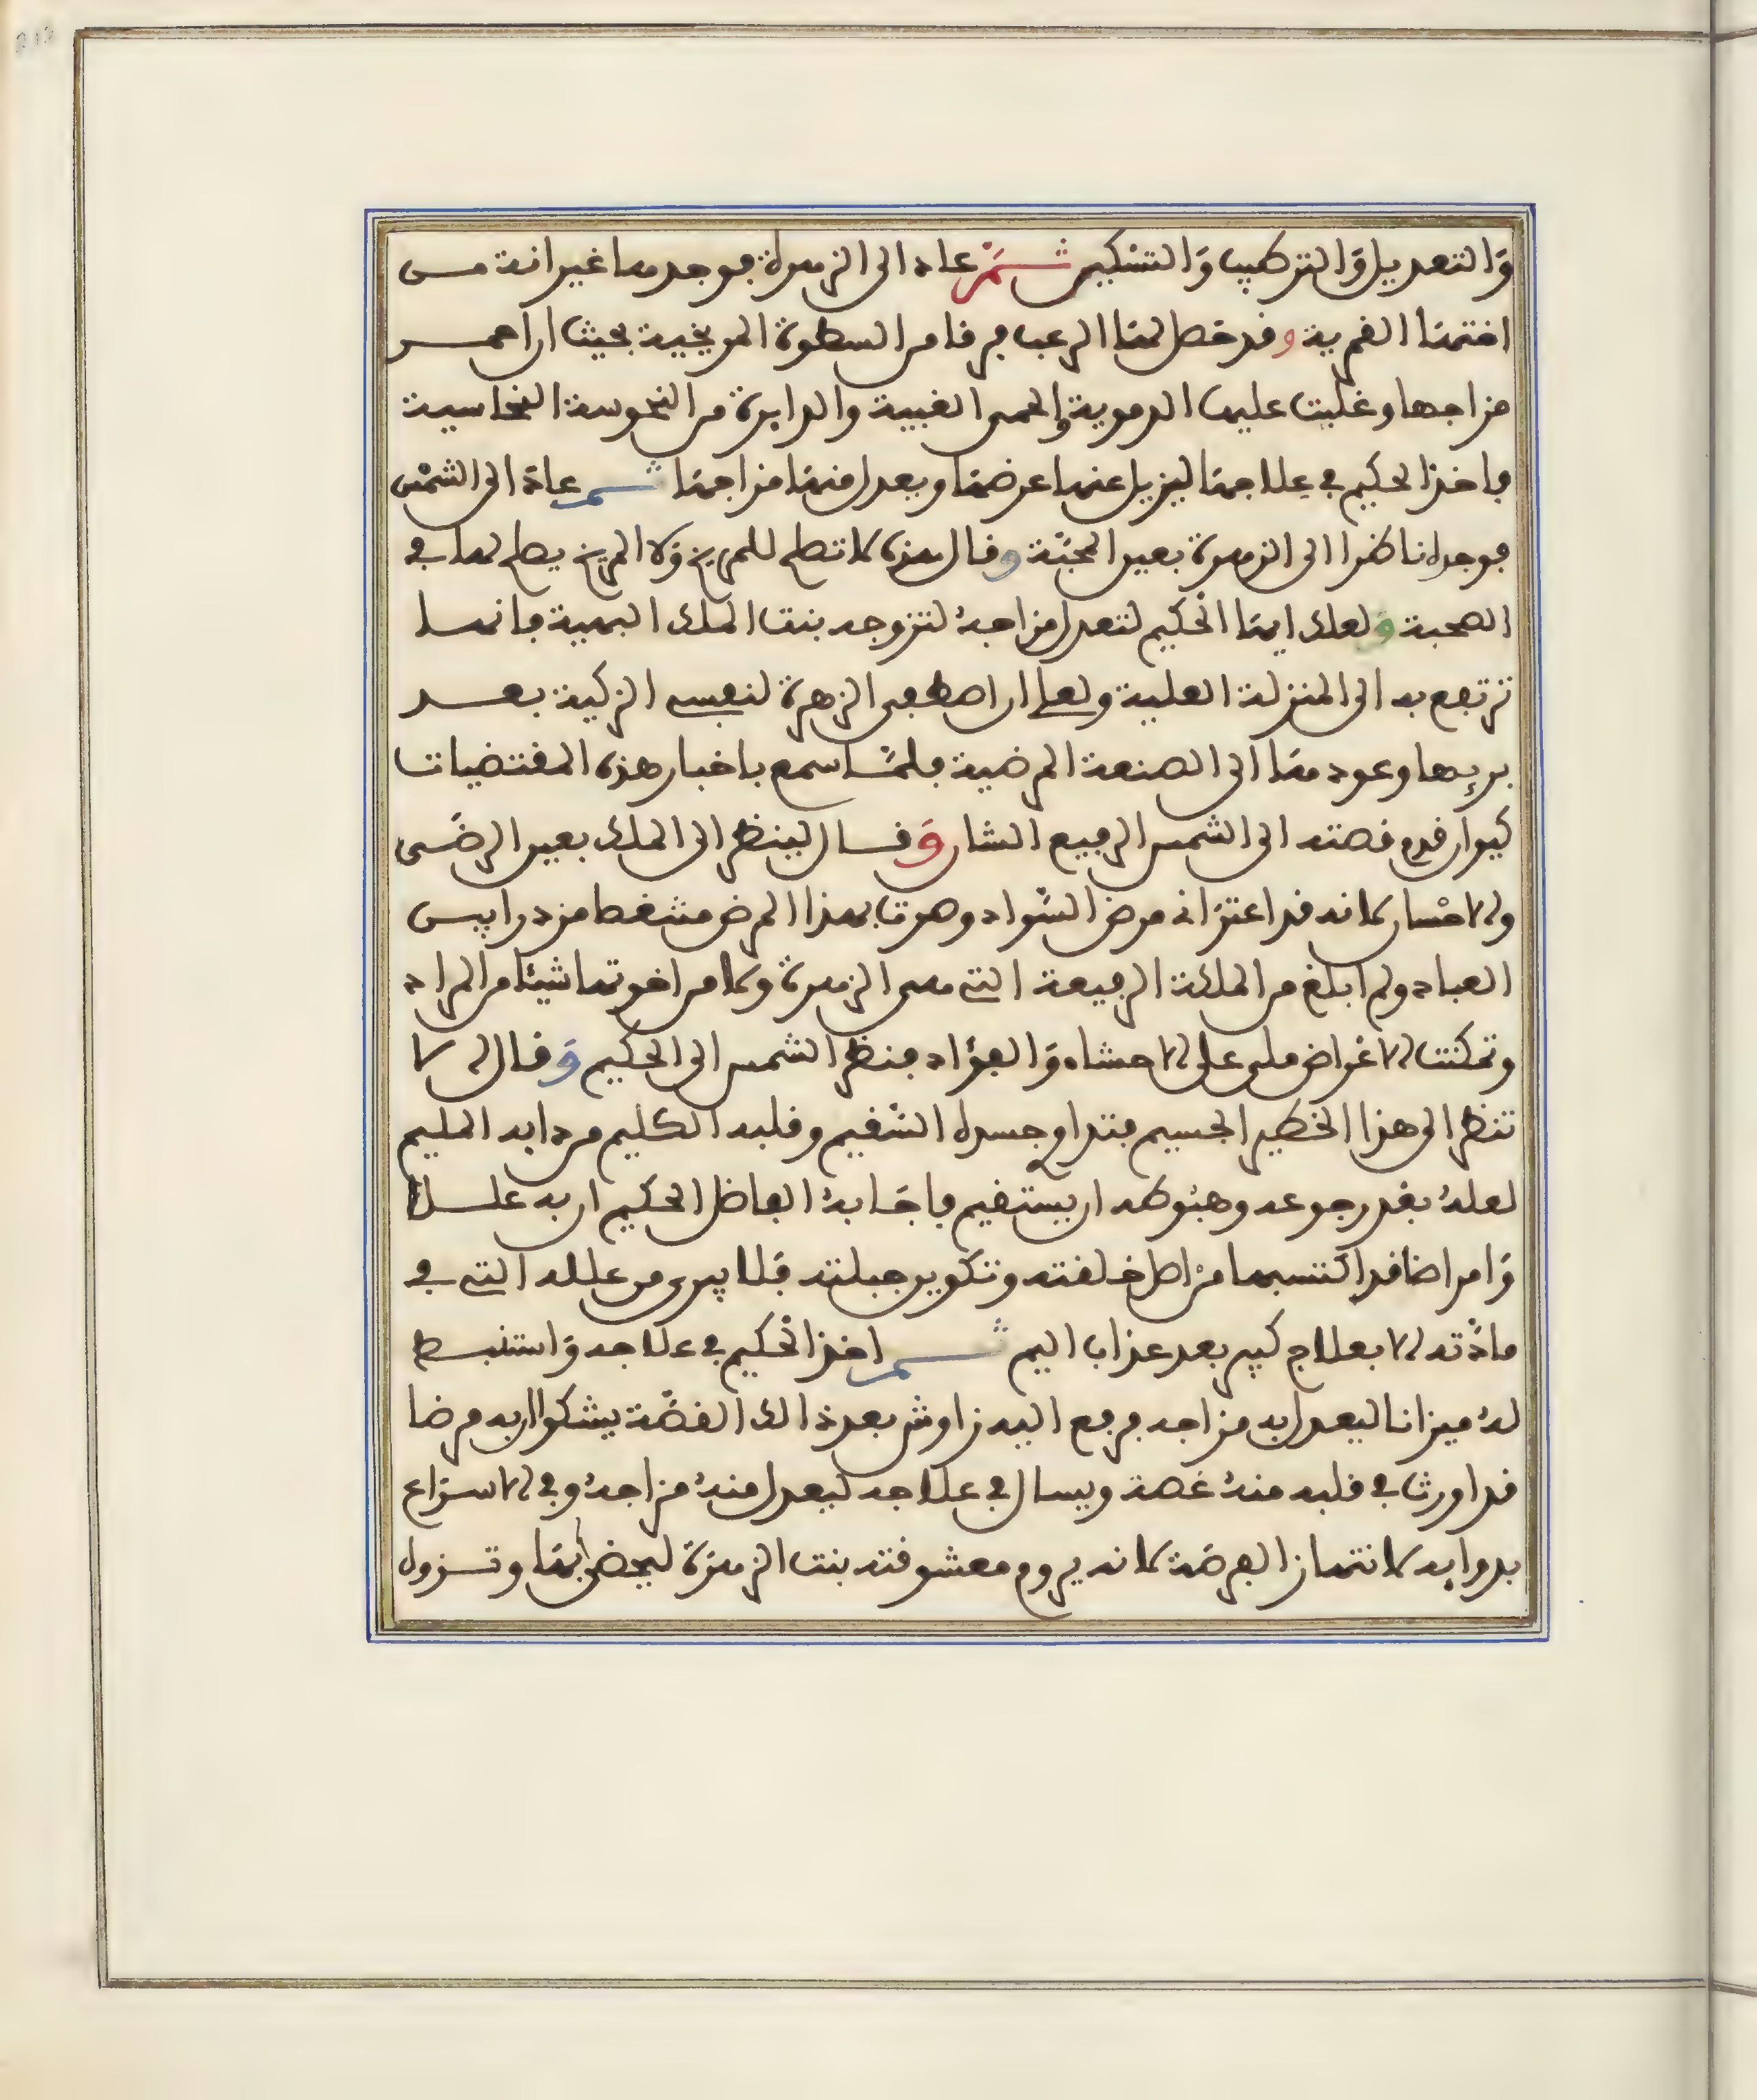 وَالتعديل وَالتركيب وَالتشكيل ثــم عاد الى الزهرة فوجدها غيرانة مــن
اختها القمرية وقد حصل لها الرعب فرقا من السطوة المريخية بحيث ان احمــر
مزاجها وغلبت عليها الدموية والحمى الغبية والدايرة من النحوسة النحاسية
فاخذ الحكيم في علاجها ليزيل عنها عرضها ويعدل منها مزاجها ثــم عاد الى الشمس
فوجده ناظرا الى الزهرة بعين المحبّة وقال هذه لا تصلح للمريخ ولا المريخ يصلح لها في
الصحبة ولعلك ايها الحكيم لتعدل مزاجهُ لتزوجه بنت الملك البهية فانهــا
ترتفع به الى المنزلة العلية ولعلي ان اصطفى الزهرة لنفسي الزكية بعــد
بريها وعودها الى الصنعة المرضية فلمّـا سمع باخبار هذه المقتضيات
كيوان قدم قصته الى الشمس الرفيع الشان وَقــال لينظر الى الملك بعين الرضى
والاحسان لانه قد اعترانى مرض السّواد وصرت بهذا المرض مشغطا من دراييس
العباد ولم ابلغ من الملكة الرفيعة التي هي الزهرة ولا من اخوتها شيئا من المراد
وتمكنت الاغراض مني على الاحشاء وَالفؤاد فنظر الشمس الى الحكيم وَقــال الا
تنظر الى هذا الخطير الجسيم فتداوى جسده السّقيم وقلبه الكليم من دايه المليم
لعلهُ بعد رجوعه وهبوطه ان يستقيم فاجَـابهُ الفاضل الحكيم ان به علــلا
وَامراضا قد اكتسبها من اصل خلقته وتكوين جبلته فلا يبرى من علله التي في
مادّته الا بعلاج كبير بعد عذاب اليم ثــم اخذ الحكيم في علاجه وَاستنبــط
لهُ ميزانا ليعدل به مزاجه فرفع اليه زاوش بعد ذالك القصّة يشكوا ان به مرضا
قد اورث في قلبه منهُ غصة ويسال في علاجه ليعدل منهُ مزاجهُ وفي الاسراع
بدوايه لانتهاز الفرصَة لانه يروم معشوقته بنت الزهرة ليحضى بها وتــزول